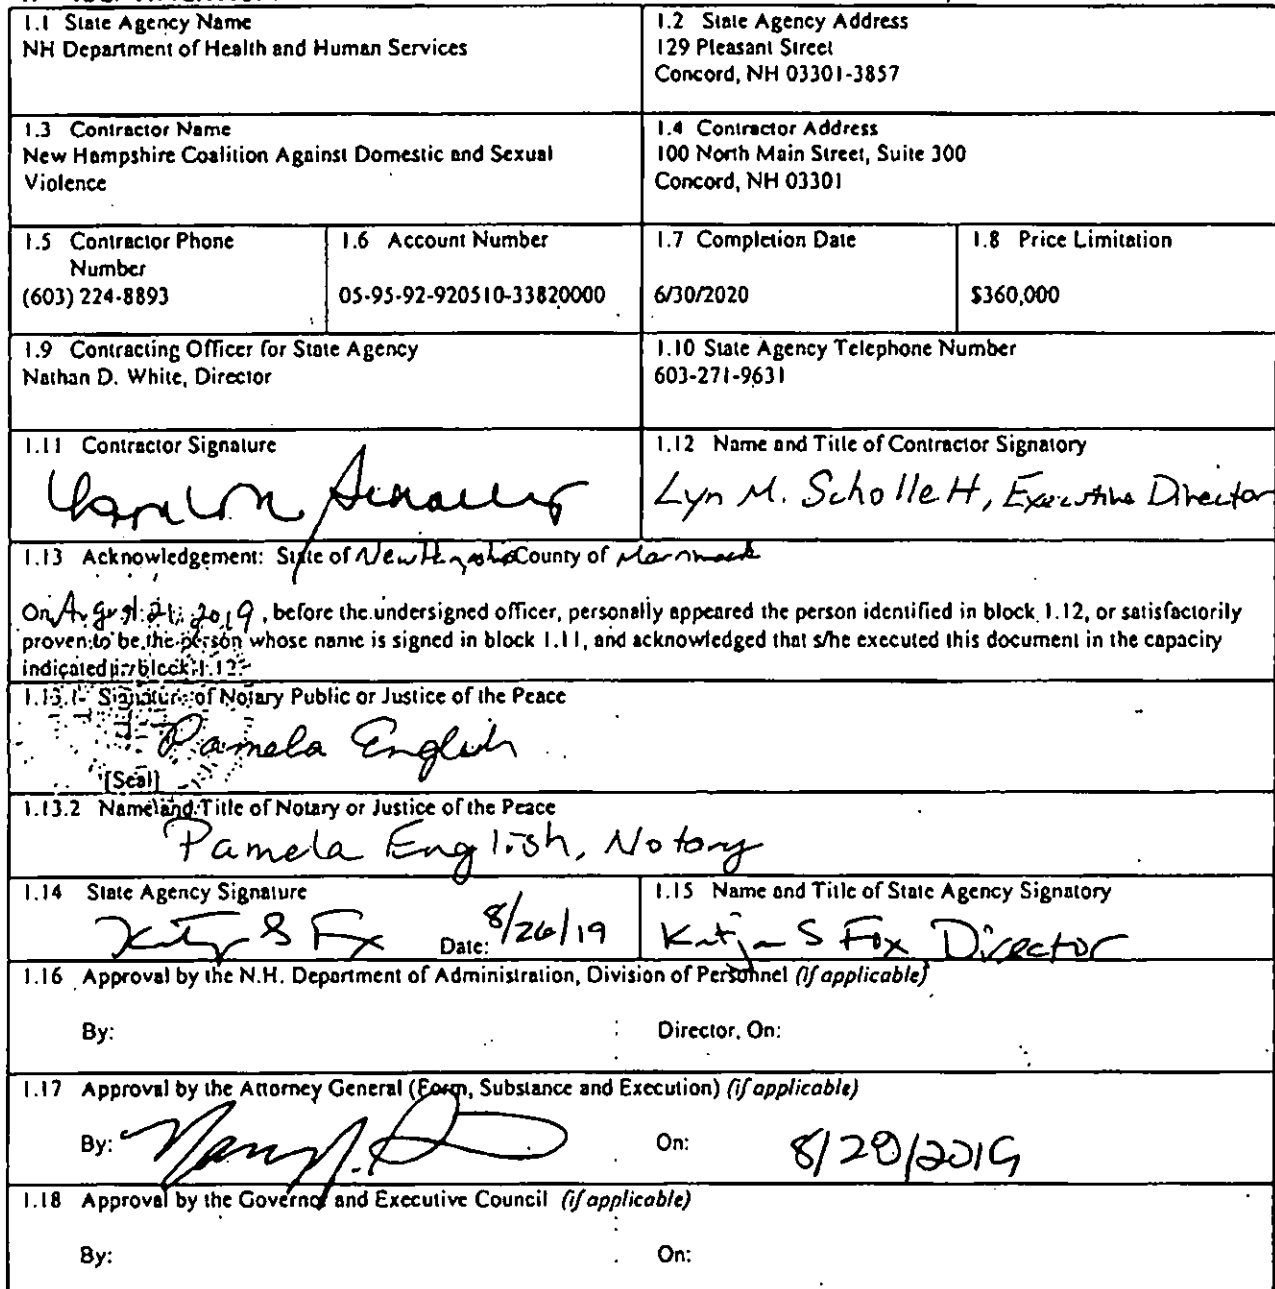 1.1 State Agency Name
NH Department of Health and Human Services
1.2 State Agency Address
129 Pleasant Street
Concord, NH 03301-3857
1.3 Contractor Name
New Hampshire Coalition Against Domestic and Sexual
Violence
1.4 Contractor Address
100 North Main Street, Suite 300
Concord, NH 03301
1.5 Contractor Phone
Number
(603) 224-8893
1.6 Account Number
05-95-92-920510-33820000
1.7 Completion Date
6/30/2020
1.8 Price Limitation
$360,000
1.9 Contracting Officer for State Agency
Nathan D. White, Director
1.10 State Agency Telephone Number
603-271-9631
1.11 Contractor Signature
1.12 Name and Title of Contractor Signatory
Lyn M. Schollett, Executive Director
1.13 Acknowledgement: State of New Hampshire County of Merrimack
On August 21, 2019, before the undersigned officer, personally appeared the person identified in block 1.12, or satisfactorily
proven to be the person whose name is signed in block 1.11, and acknowledged that s/he executed this document in the capacity
indicated in block 1.12.
1.13.1 Signature of Notary Public or Justice of the Peace
Pamela English
[Seal]
1.13.2 Name and Title of Notary or Justice of the Peace
Pamela English, Notary
1.14 State Agency Signature
Date: 8/26/19
1.15 Name and Title of State Agency Signatory
S Fox Director
1.16 Approval by the N.H. Department of Administration, Division of Personnel (if applicable)
By:
Director, On:
1.17 Approval by the Attorney General (Form, Substance and Execution) (if applicable)
By:
On: 8/28/2019
1.18 Approval by the Governor and Executive Council (if applicable)
By:
On: